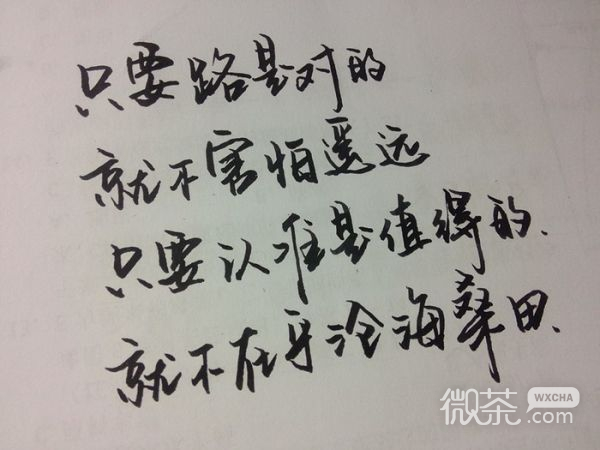 只要路是对的
就不害怕遥远
只要认准是值得的、
就不在乎沧海桑田、
微茶 WXCHA
.com